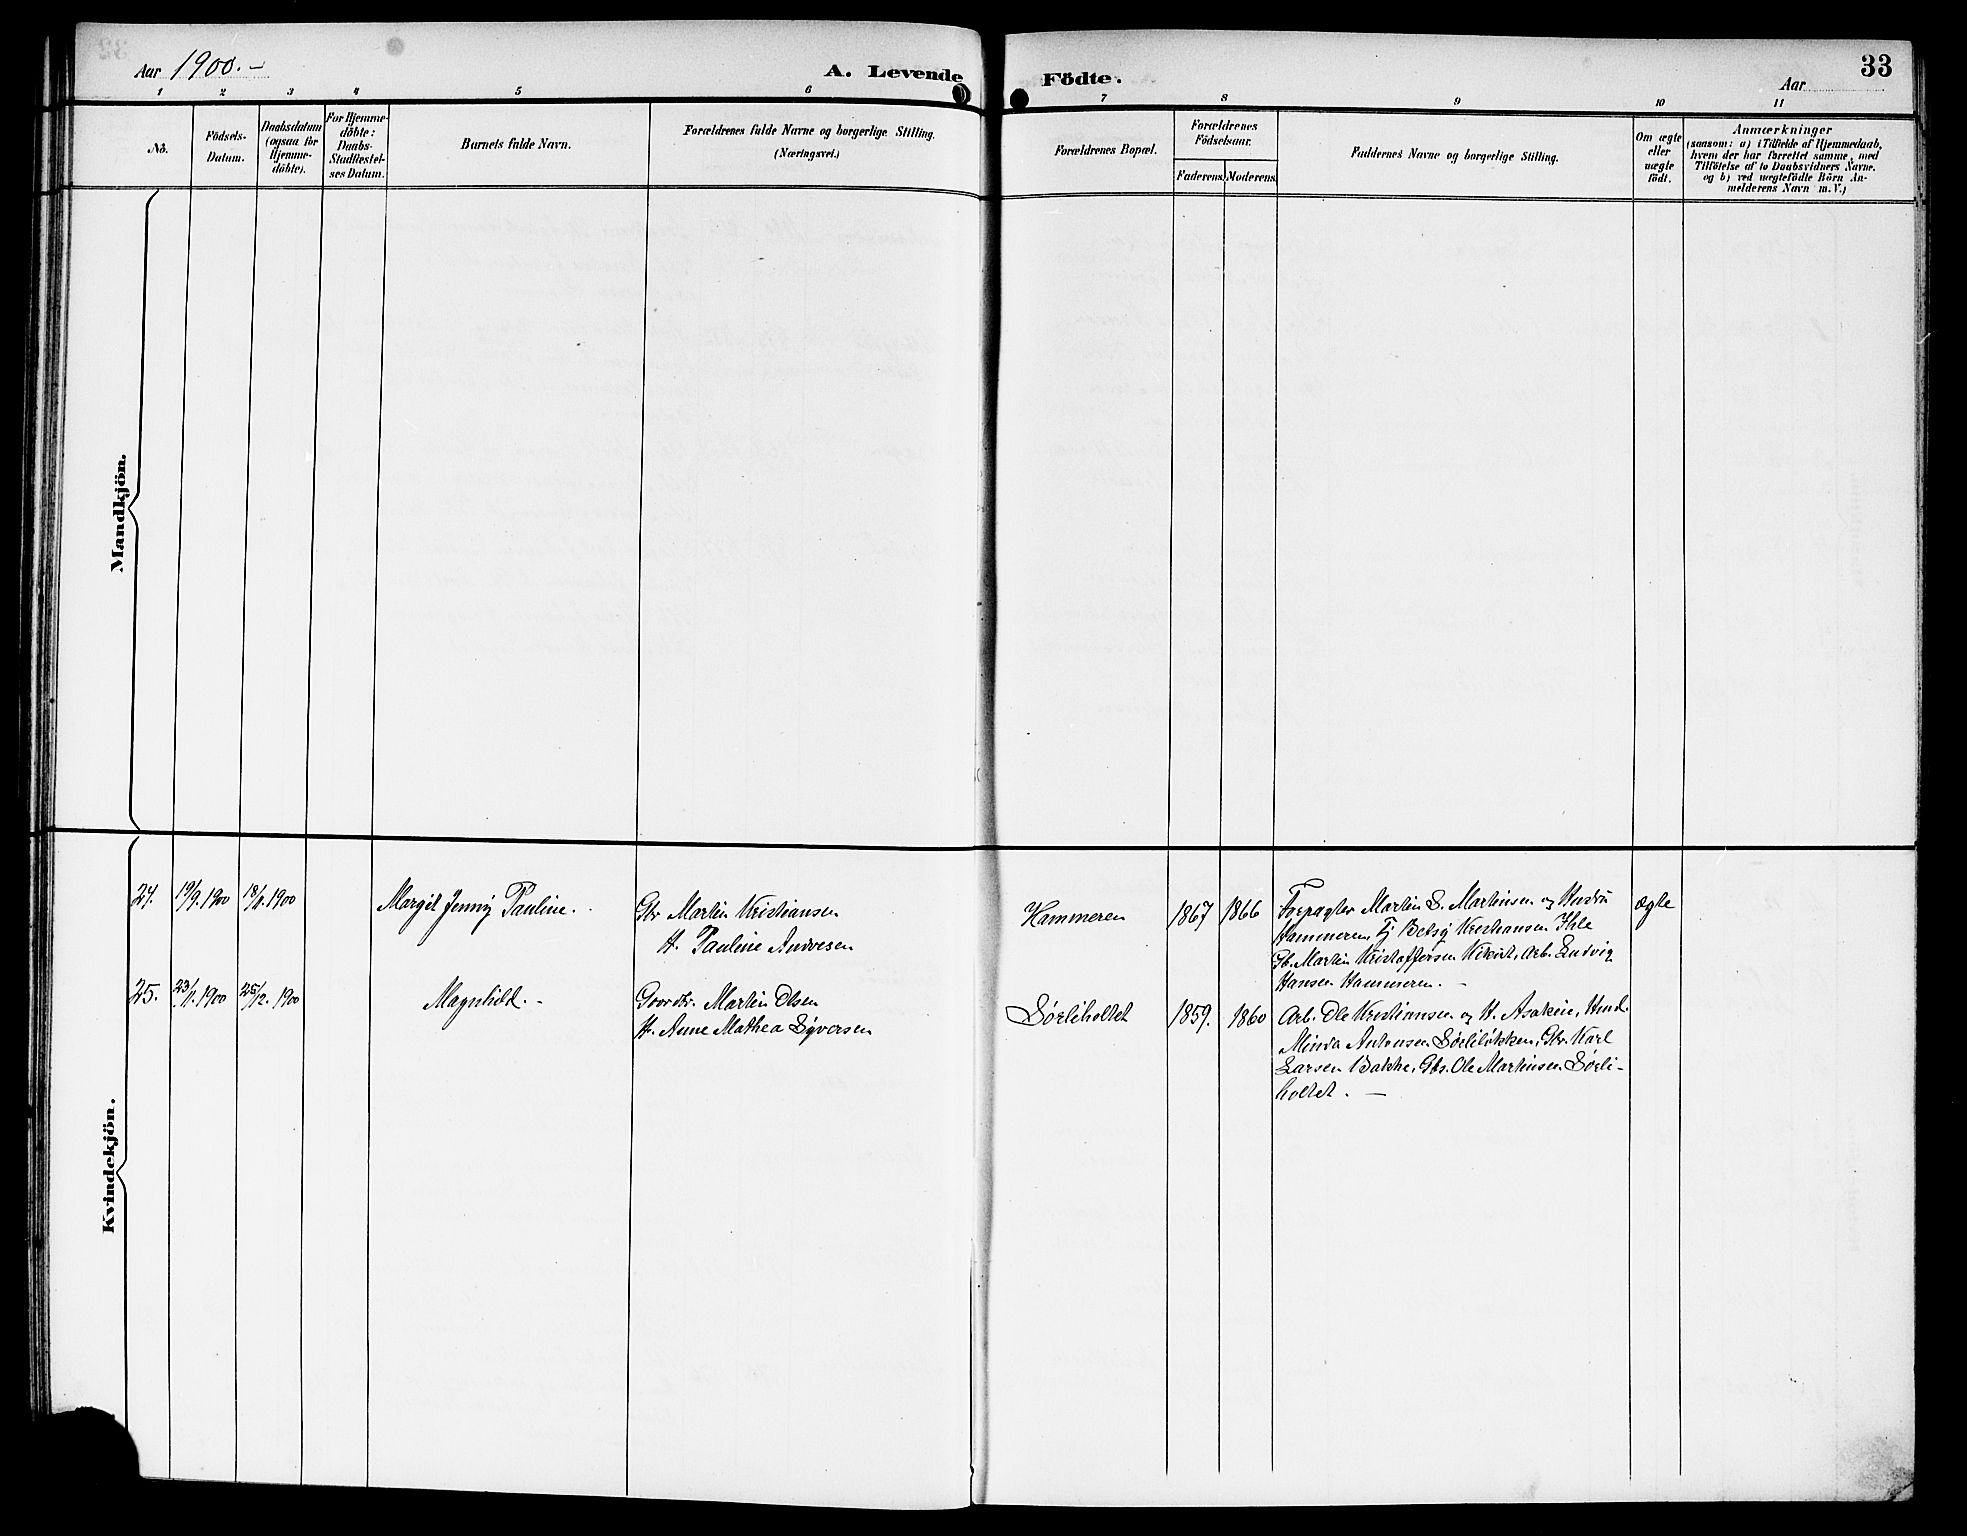 Aar 1900. –
A. Levende
Födte.
33
Aar
1 2 3 4 5 6 7 8 9 10 11
No.
Födsels-
Datum.
Daabsdatum
(ogsaa for
Hjemme-
döbte).
For Hjemme-
döbte:
Daabs-
Stadfæstel-
ses Datum.
Barnets fulde Navn.
Forældrenes fulde Navne og borgerlige Stilling.
(Næringsvei.)
Forældrenes Bopæl.
Forældrenes
Födselsaar.
Faderens. Moderens.
Faddernes Navne og borgerlige Stilling.
Om ægte
eller
uægte
födt.
Anmærkninger
(saasom: a) i Tilfælde af Hjemmedaab,
hvem der har forrettet samme, med
Tilföielse af to Daabsvidners Navne.
og b) ved uægtefödte Börn An-
melderens Navn m. V.)
Mandkjön.
Kvindekjön.
24. 19/9. 1900 18/11. 1900 Margit Jenny Pauline. Gbr Martin Kristiansen
H. Pauline Andresen
Hammeren 1867 1866 Forpagter Martin S. Martinsen og Hustru
Hammeren, Pj Betsy Kristiansen Ihle
Gb. Martin Kristoffersen, Arb. Ludvig
Hansen Hammeren. –
ægte
25. 23/11. 1900 26/12. 1900 Magnhild. – Martin Olsen
H. Anne Mathea Syversen
Sørliholtet 1859. 1860 Arb. Ole Kristiansen og H. Asakine,
Minda Antonsen Sørliløkken, Gbr. Karl
Larsen Bakke, Gbs. Ole Martinsen Sørli-
holtet. –